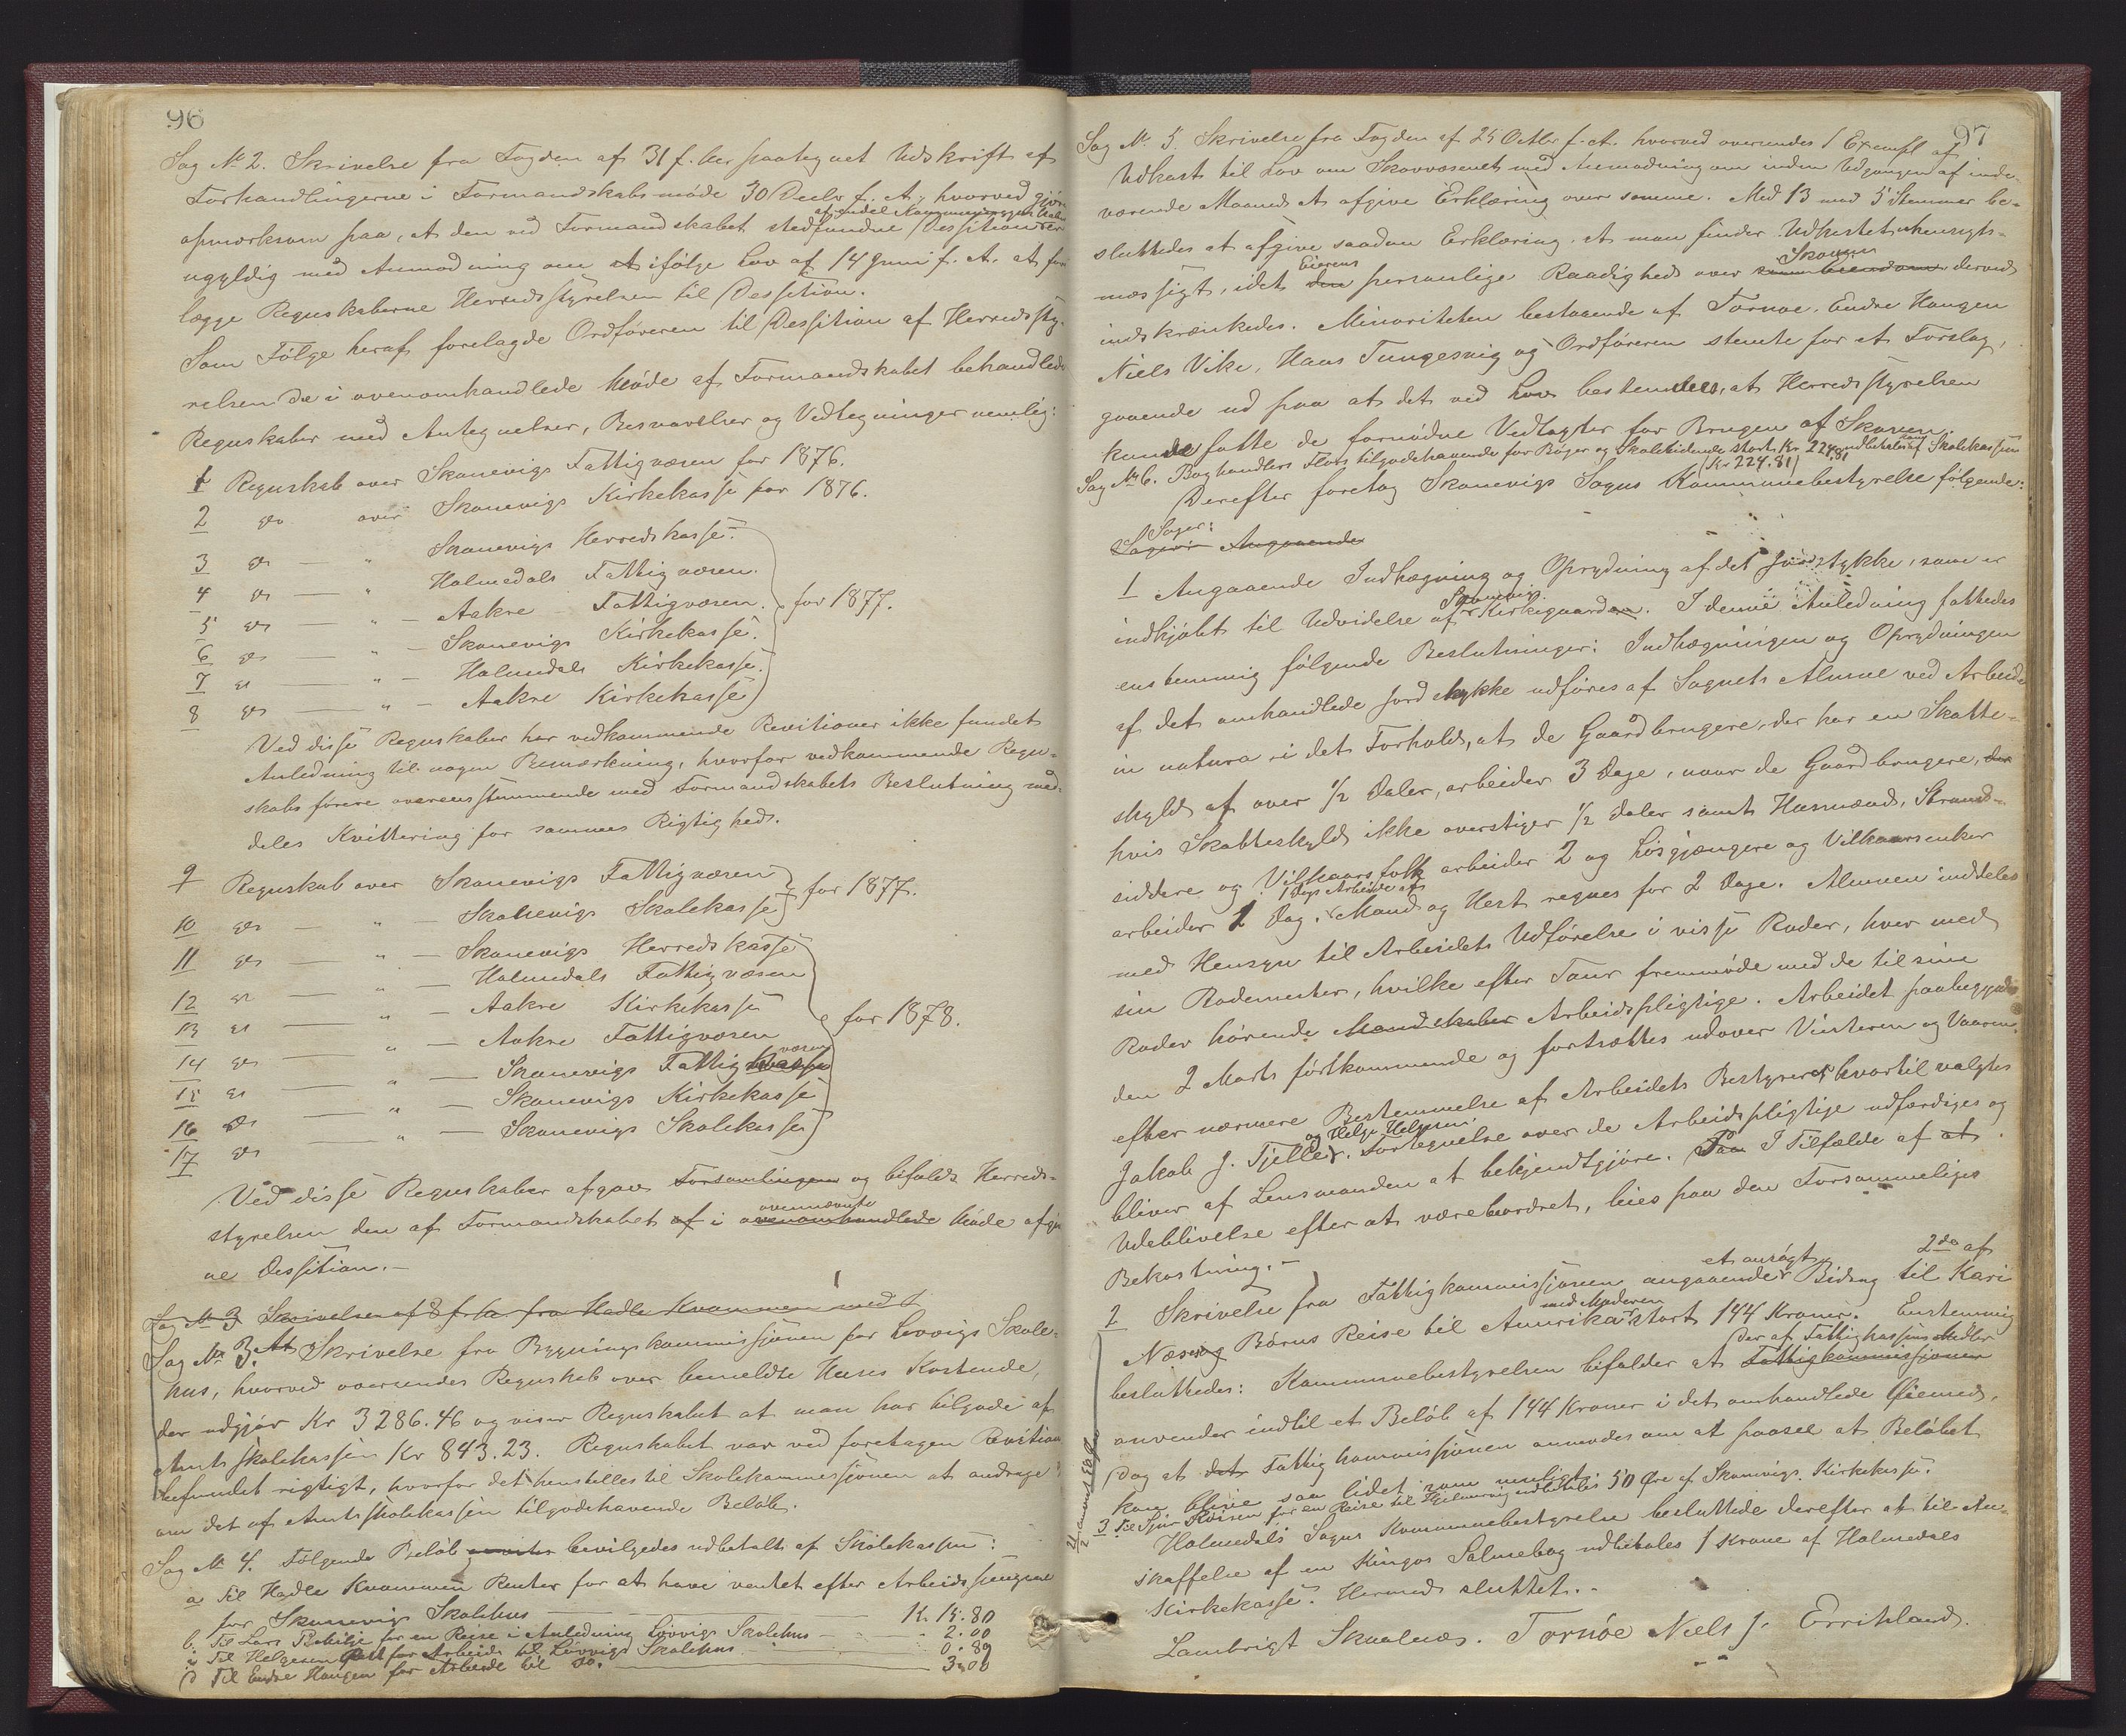 96
Sag No 2. Skrivelse fra Fogden af 31 f. M. paategnet Udskrift af
Forhandlingerne i Formandskabsmøde 30 Decbr f. A., hvorved gjør
opmærksom paa, at den ved Formandskabet stedfundne Dessition er
ugyldig med Anmodning om at ifølge Lov af 14 Juni f. A. at fore
lægge Regnskaberne Herredsstyrelsen til Dessition.
Som Følge heraf forelagde Ordføreren til Dessition af Herredssty-
relsen de i ovenomhandlede Møde af Formandskabet behandlede
Regnskaber med Antegnelser, Besvarelser og Vedtegninger nemlig:
1 Regnskab over Skonevigs Fattigvæsen for 1876.
2 do over Skonevigs Kirkekasse for 1876.
3 do — " Skonevigs Herredskasse.
4 do — " Holmedals Fattigvæsen.
5 do — " — Aakre Fattigvæsen. for 1877.
6 do — " — Skonevigs Kirkekasse.
7 do — " — Holmedals Kirkekasse.
8 do — " — Aakre Kirkekasse
Ved disse Regnskaber har vedkommende Revisioner ikke fundet
Anledning til nogen Bemærkning, hvorfor vedkommende Regn-
skabsførere overensstemmende med Formandskabets Beslutning med-
deles Kvittering for sammes Rigtighed.
9 Regnskab over Skonevigs Fattigvæsen for 1877.
10 do — " — Skonevigs Skolekasse
11 do — " — Skonevigs Herredskasse
12 do — " — Holmedals Fattigvæsen
13 do — " — Aakre Kirkekasse for 1878.
14 do — " — Aakre Fattigvæsen
15 do — " — Skonevigs Fattigkasse væsen
16 do — " — Skonevigs Kirkekasse
17 do — " — Skonevigs Skolekasse
Ved disse Regnskaber afgav Forsamlingen og bifaldt Herreds-
styrelsen den af Formandskabet af i ovenomhandlede ovennævnte Møde afgiv
ne Dessition.—
Sag No 3 Skrivelse af 8 f. M. fra Hadle Kvammen med
Sag No 3. Att Skrivelse fra Bygningskommissjonen for Løvvigs Skole-
hus, hvorved oversendes Regnskab over bemeldte Huses Kostende,
der udgjør Kr 3286.46 og viser Regnskabet at man har tilgode af
Amtsskolekassen Kr 843.23. Regnskabet var ved foretagen Revision
befundet rigtigt, hvorfor det henstilles til Skolekommissjonen at andrage
om det af Amtsskolekassen tilgodehavende Beløb.
Sag No 4. Følgende Beløb bevilgedes udbetalt af Skolekassen:
a Til Hadle Kvammen Renter for at have ventet efter Arbeidspengene
for Skonevigs Skolehus — Kr. 15.80
b. Til Lars for en Reise i Anledning Løvvigs Skolehus — 2.00
c Til Helgesen for Arbeide til Løvvigs Skolehus — 0.89
d Til Endre Haugen for Arbeide til do. — 3.00
97
Sag No 5. Skrivelse fra Fogden af 25 Octbr f. A. hvorved oversendes 1 Exempl af
Udkast til Lov om Skovvæsenet med Anmodning om inden Udgangen af inde-
værende Maaned at afgive Erklæring over samme. Med 13 mod 5 Stemmer be-
sluttedes at afgive saadan Erklæring, at man finder Udkastet uhensigts-
mæssigt, idet den Eierens personlige Raadighed over Skoven derved
indskrænkedes. Minoriteten bestaaende af Tornøe, Endre Haugen
Niels Vike, Hans Tungesvig og Ordføreren stemte for et Forslag,
gaaende ud paa at det ved Lov bestemdes, at Herredsstyrelsen
kunde fatte de fornødne Vedtægter for Brugen af Skoven.
Sag No 6. Boghandler Flors tilgodehavende for Bøger og Skoletidende stort Kr. 224,81 udbetales af Skolekassen
(Kr 224.81)
Derefter foretog Skonevigs Sogns Kommunebestyrelse følgende:
Sager:
Angaaende
1 Angaaende Indhægning og Oprydning af det Jordstykke, som er
indkjøbt til Udvidelse af Skonevigs Kirkegaard. I denne Anledning fattedes
enstemmig følgende Beslutninger: Indhægningen og Oprydningen
af det omhandlede Jordstykke udføres af Sognets Almue ved Arbeide
in natura i det Forhold, at de Gaardbrugere, der har en Skatte-
skyld af over ½ Daler, arbeider 3 Dage, naar de Gaardbrugere, der
hvis Skatteskyld ikke overstiger ½ Daler samt Husmænd, Strand-
siddere og Vilkaarsfolk arbeider 2 og Løsgjængere og Vilkaarsenker
arbeider 1 Dag. 1 Dags Arbeide af Mand og Hest regnes for 2 Dage. Almuen inddeles
med Hensyn til Arbeidets Udførelse i visse Roder, hver med
sin Rodemester, hvilke efter Tour fremmøde med de til sin
Rode hørende Mandskaber Arbeidspligtige. Arbeidet paabegyndes
den 2 Marts førstkommende og fortsættes udover Vinteren og Vaaren
efter nærmere Bestemmelse af Arbeidets Bestyrer, hvortil valgtes
Jakob J. Tjelle og Helge Helgesen. Fortegnelse over de Arbeidspligtige udfærdiges og
bliver af Lensmanden at bekjendtgjøre. I Tilfælde af at
Udeblivelse efter at være beordret, leies paa den Forsømmeliges
Bekostning.—
2 Skrivelse fra Fattigkommissjonen angaaende et ansøgt Bidrag til Kari
Næs og 2de af Børns Reise til Amerika med Moderen stort 144 Kroner. Enstemmig
besluttedes: Kommunebestyrelsen bifalder at der af Fattigkassens Midler Fattigkommissjonen
anvender indtil et Beløb af 144 Kroner i det omhandlede Øiemed,
dog at det Fattigkommissjonen anmodes om at paasee at Beløbet
kan blive saa lidet som muligt.
3 Til Sjur for en Reise til udbetales 50 Øre af Skonevigs Kirkekasse.
Holmedals Sogns Kommunebestyrelse besluttede derefter at til An-
skaffelse af en Kingos Salmebog udbetales 1 Krone af Holmedals
Kirkekasse. Hermed sluttet.—
Lambrigt Skaalnæs. Tornøe Niels J. Erriksland.